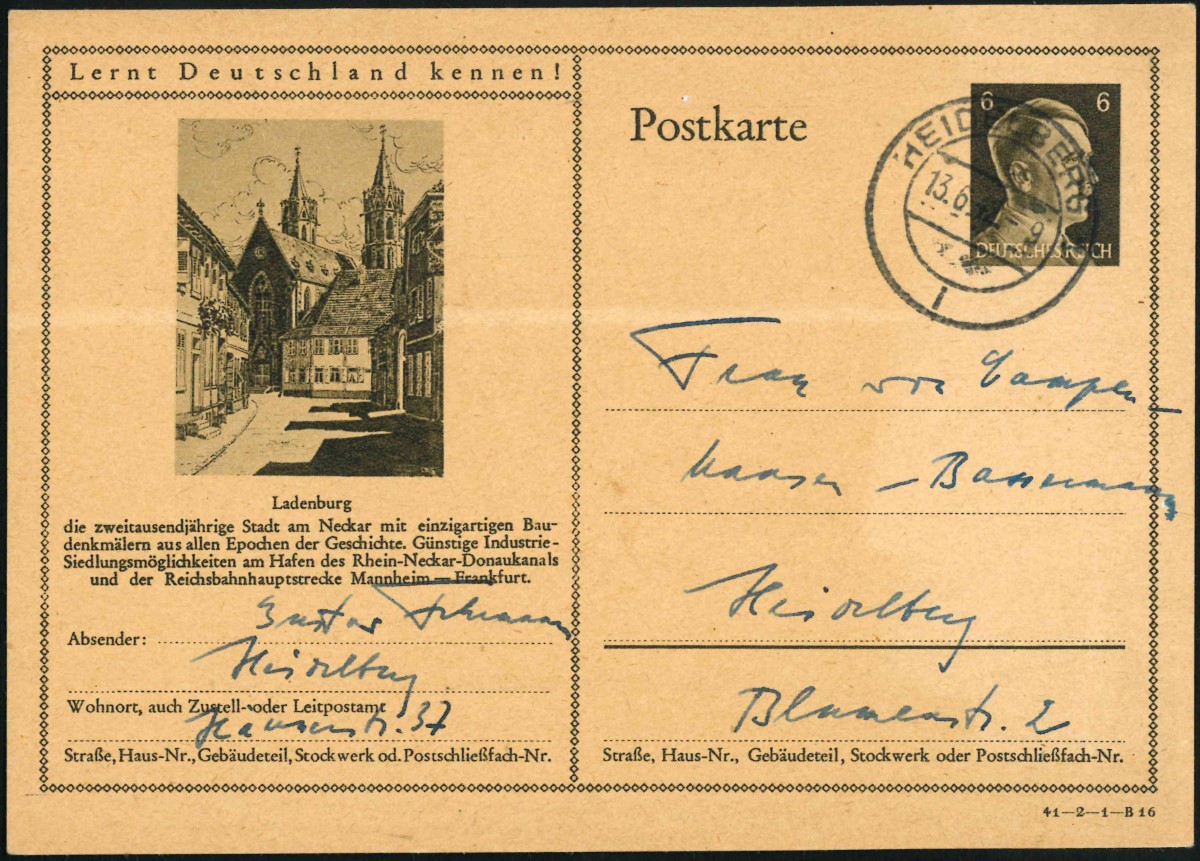 Lernt Deutschland kennen!
Ladenburg
die zweitausendjährige Stadt am Neckar mit einzigartigen Bau-
denkmälern aus allen Epochen der Geschichte. Günstige Industrie-
Siedlungsmöglichkeiten am Hafen des Rhein-Neckar-Donaukanals
und der Reichsbahnhauptstrecke Mannheim—Frankfurt.
Absender: Gustav
Heidelberg
Wohnort, auch Zustell- oder Leitpostamt
Häusserstr. 37
Straße, Haus-Nr., Gebäudeteil, Stockwerk od. Postschließfach-Nr.
Postkarte
6 6
DEUTSCHES REICH
HEIDELBERG
13.6.
Frau von Campen-
- Bassermann
Heidelberg
Blumenstr. 2
Straße, Haus-Nr., Gebäudeteil, Stockwerk oder Postschließfach-Nr.
41—2—1—B 16